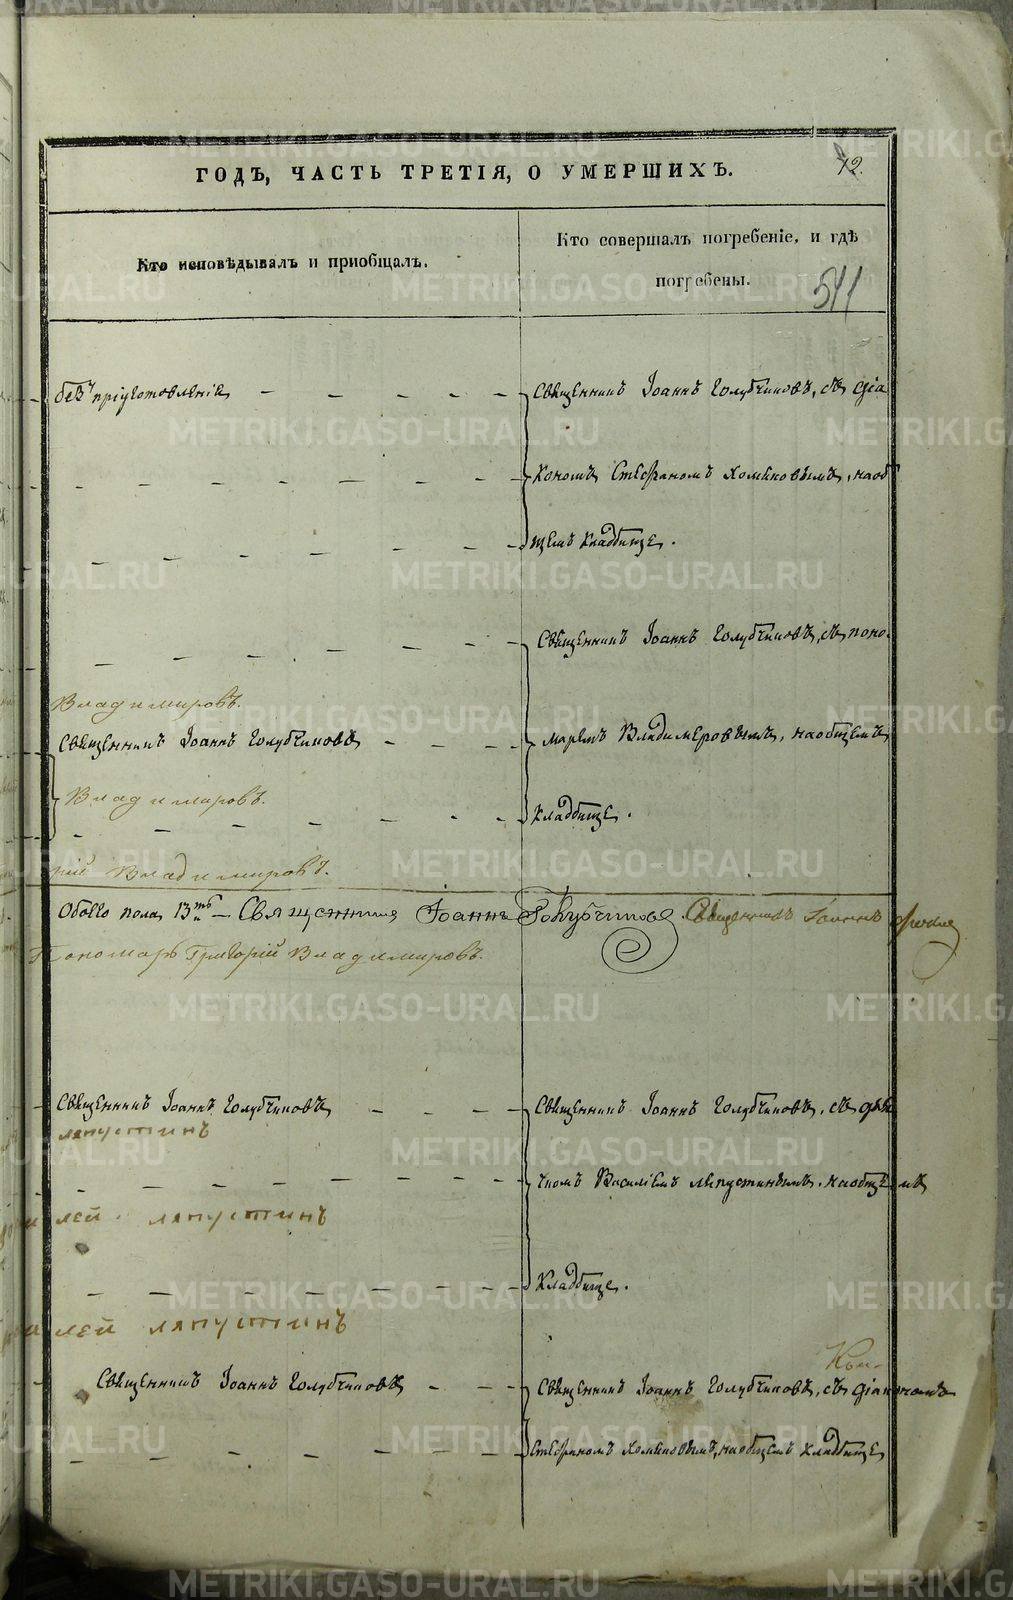 ГОДЪ, ЧАСТЬ ТРЕТІЯ, О УМЕРШИХЪ.
72.
Кто исповѣдывалъ и пріобщалъ.
Кто совершалъ погребеніе, и гдѣ
погребены.
511
безъ пріуготовленія
Священникъ Іоаннъ Голубчиковъ, съ діа
кономъ Стефаномъ Хомяковымъ, на об
щемъ кладбище.
Священникъ Іоаннъ Голубчиковъ, съ поно-
Владимировъ.
Священникъ Іоаннъ Голубчиковъ
маремъ Владимеровымъ, на общемъ
Владимировъ.
кладбище.
рій Владимировъ.
Обоего пола 13ть Священникъ Іоаннъ Голубчиковъ. Священникъ Іоаннъ
Пономарь Григорій Владимировъ.
Священникъ Іоаннъ Голубчиковъ
Священникъ Іоаннъ Голубчиковъ, съ дья
ляпустинъ
чкомъ Василіемъ Ляпустинымъ, на общемъ
лей ляпустинъ
кладбище.
лей ляпустинъ
Священникъ Іоаннъ Голубчиковъ
Священникъ Іоаннъ Голубчиковъ, съ діакономъ
Стефаномъ Хомяковымъ, на общемъ кладбище
METRIKI.GASO-URAL.RU